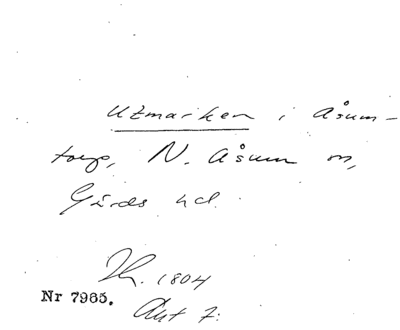 Utmarken i Åsum-
torp, N. Åsum sn,
Gärds hd.
1804
Nr 7965.
Akt 7.